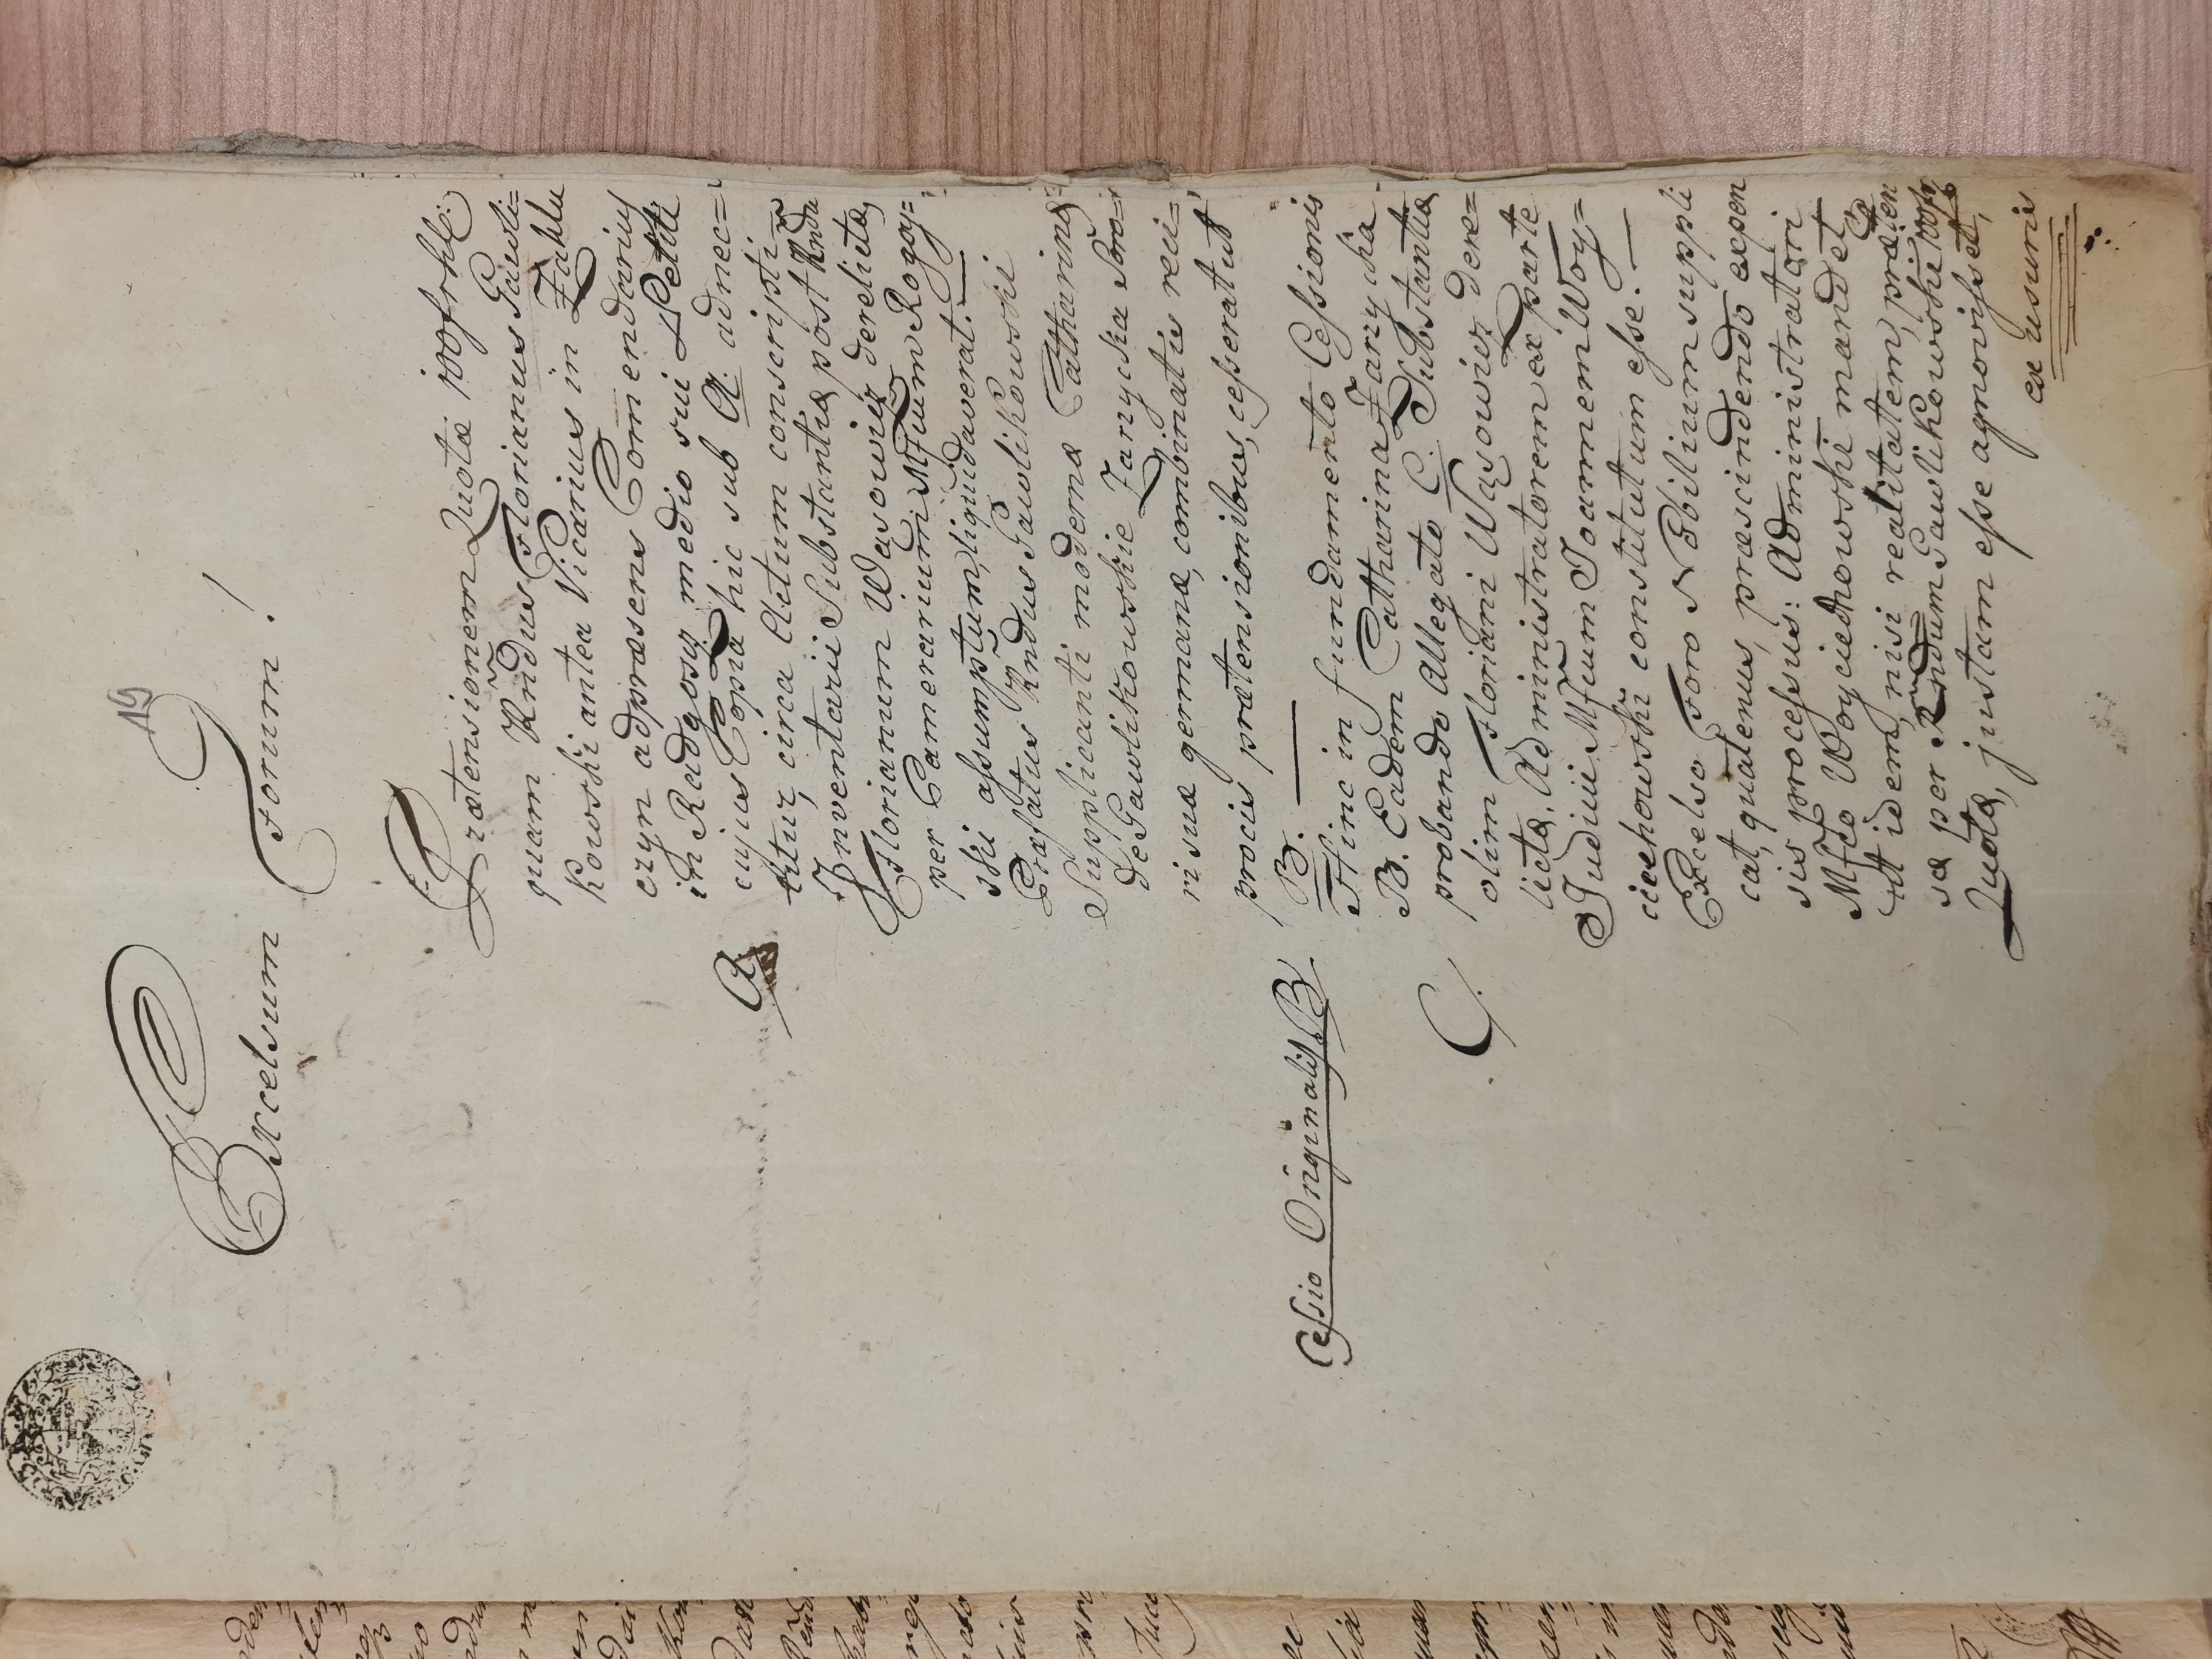 19
Excelsum Forum!
Prætensionem Quotæ 100 frhl:
quam Rndus Florianus Pawli=
kowski antea Vicarius in Zahlu
czyn ad præsens Comendarius
in Radgosz medio sui Petiti
cujus Copia hic sub A. adnec=
titur, circa Actum conscripti
Inventarii Substantiæ post Rndu
Florianum Wąsowicz derelictæ
per Camerarium Mfium Rogoy=
ski assumptum, liquidaverat.
Præfatus Rndus Pawlikowski
Supplicanti modernæ Catharinæ
de Pawlikowskie Zarzycka Soro=
ri suæ germanæ, combinatis reci=
procis prætensionibus, cesserat ut
B.
Hinc in fundamento Cessionis
B. Eadem Catharina Zarzycka
probando Allegato C. Substantiæ
olim Floriani Wąsowicz dere=
lictæ, Administratorem ex parte
Judicii Mfium Joannem Woy=
ciechowski constitutum esse.
Excelso Foro Nobilium suppli
cat, quatenus, præscindendo expen
sis processus: Administratori
Mfco Woyciechowski mandet
Ut idem, nisi realitatem, præten
sæ per Rndum Pawlikowski 100 fr
Quotæ, justam esse agnovisset,
ex usuris
A.
Cessio Originalis B.
C.